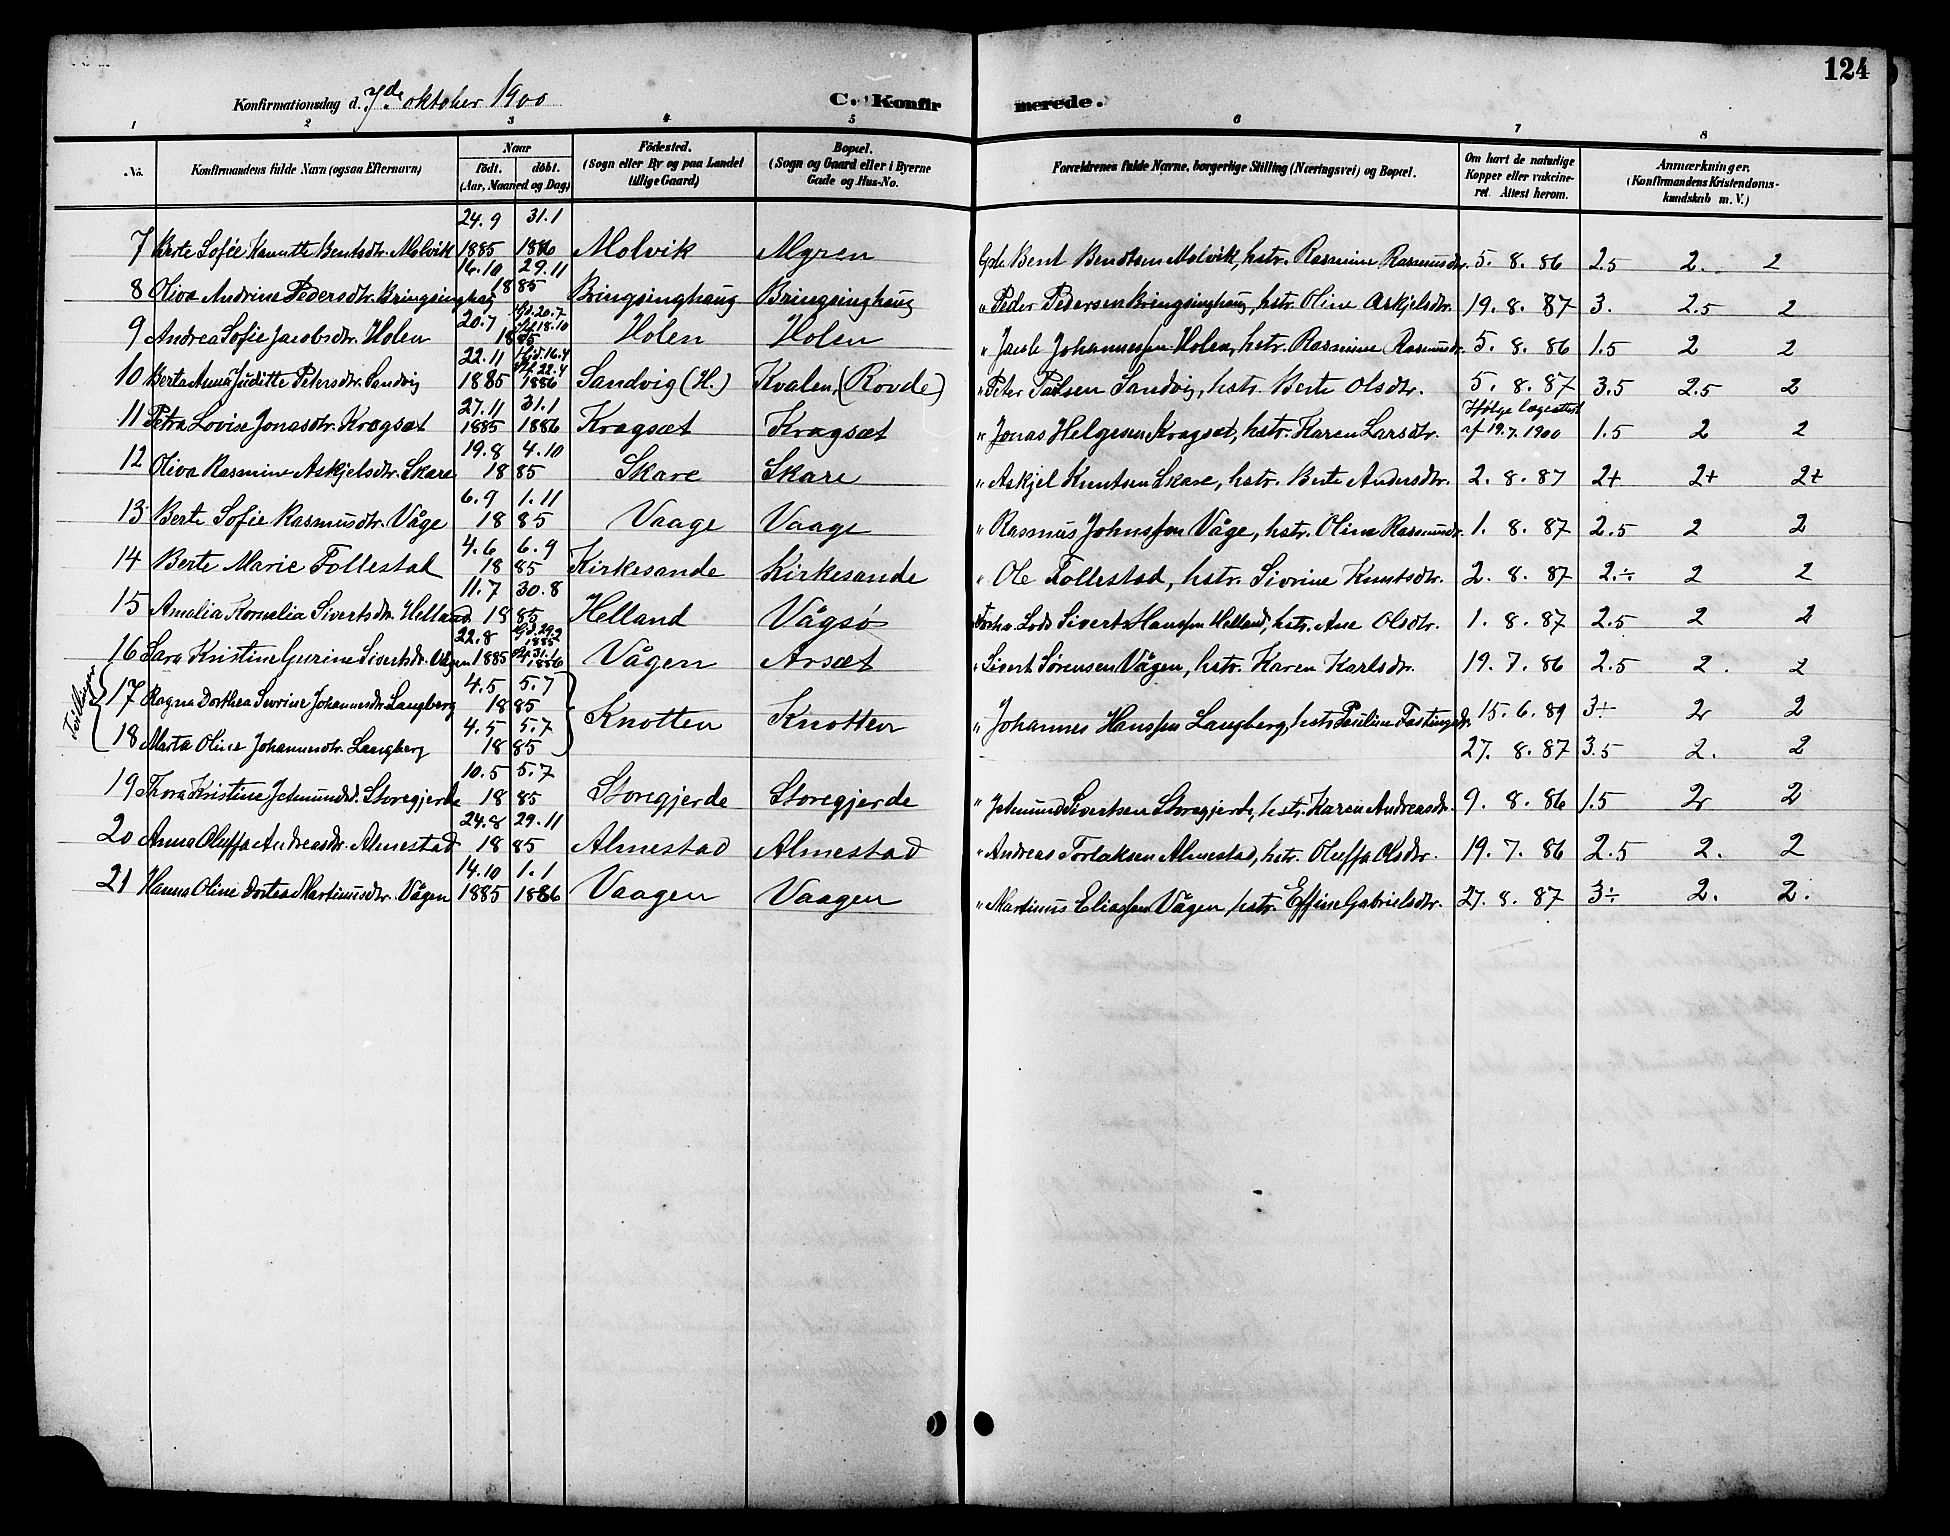 124
Konfirmationsdag d. 7de oktober 1900 C. Konfir merede.
1 2 3 4 5 6 7 8
No. Konfirmandens fulde Navn (ogsaa Efternavn) Naar födt. döbt. (Aar, Maaned og Dag) Födested. (Sogn eller By og paa Landet tillige Gaard) Bopæl. (Sogn og Gaard eller i Byerne Gade og Hus-No. Forældrenes fulde Navne, borgerlige Stilling (Næringsvei) og Bopæl. Om havt de naturlige Kopper eller vakcineret. Attest herom. Anmærkninger. (Konfirmandens Kristendomskundskab m. V.)
7 Berte Sofie Kanutte Bentsdtr. Molvik 24.9 1885 31.1 1886 Molvik Myren Gbr. Bent Bendtsen Molvik, hstr. Rasmine Rasmusdtr. 5. 8. 86 2.5 2. 2
8 Oliva Andrine Pedersdtr. Bringsinghaug 16.10 29.11 1885 Bringsinghaug Bringsinghaug " Peder Pedersen Bringsinghaug, hstr. Oline Askjelsdtr. 19. 8. 87 3. 2.5 2
9 Andrea Sofie Jacobsdtr. Holen 20.7 Hjd. 20.7 18.10 1885 Holen Holen " Jacob Johannessen Holen, hstr. Rasmine Rasmusdtr. 5. 8. 86 1.5 2 2
10 Berta Anna Juditte Petersdtr. Sandvig 22.11 1885 Hjd. 16.4 22.4 1886 Sandvig (H.) Kvalen (Rovde) " Peter Paulsen Sandvig, hstr. Berte Olsdtr. 5. 8. 87 3.5 2.5 2
11 Petra Lovise Jonasdtr. Kragsæt 27.11 1885 31.1 1886 Kragsæt Kragsæt " Jonas Helgesen Kragsæt, hstr. Karen Larsdtr. Ifølge lægeattest af 19.7.1900 1.5 2 2
12 Oliva Rasmine Askjelsdtr. Skare 19.8 4.10 1885 Skare Skare " Askjel Knutsen Skare, hstr. Berte Andersdtr. 2. 8. 87 2+ 2+ 2+
13 Berte Sofie Rasmusdtr. Våge 6.9 1.11 1885 Vaage Vaage " Rasmus Johnssen Våge, hstr. Oline Rasmusdtr. 1. 8. 87 2.5 2 2
14 Berte Marie Follestad 4.6 6.9 1885 Kirkesande Kirkesande " Ole Follestad, hstr. Sivrine Knutsdtr. 2. 8. 87 2.÷ 2 2
15 Amalia Kornelia Sivertsdtr. Helland 11.7 30.8 1885 Helland Vågsø Lods Sivert Hanssen Helland, hstr. Ane Olsdtr. 1. 8. 87 2.5 2 2
16 Sara Kristine Gurine Sivertsdtr. Vågen 22.8 1885 Hjd. 29.2 1885 31.1 1886 Vågen Arsæt " Sivert Sørensen Vågen, hstr. Karen Karlsdtr. 19. 7. 86 2.5 2. 2
Tvillinger
17 Ragna Dorthea Severine Johannesdtr. Langberg 4.5 5.7 1885 Knotten Knotten " Johannes Hanssen Langberg, hstr. Pauline Fastingsdtr. 15. 6. 89 3÷ 2 2
18 Marta Oline Johannesdtr. Langberg 4.5 5.7 1885 27. 8. 87 3.5 2. 2
19 Thora Kristine Jetmundsd. Storegjerde 10.5 5.7 1885 Storegjerde Storegjerde " Jetmund Sivertsen Storegjerde, hstr. Karen Andreasdr. 9. 8. 86 1.5 2 2
20 Anna Oluffa Andreasdtr. Almestad 24.8 29.11 1885 Almestad Almestad " Andreas Torlaksen Almestad, hstr. Oluffa Olsdtr. 19. 7. 86 2.5 2. 2
21 Hanna Oline Dortea Martinusdtr. Vågen 14.10 1885 1.1 1886 Vaagen Vaagen " Martinus Eliassen Vågen, hstr. Effine Gabrielsdtr. 27. 8. 87 3÷ 2. 2.